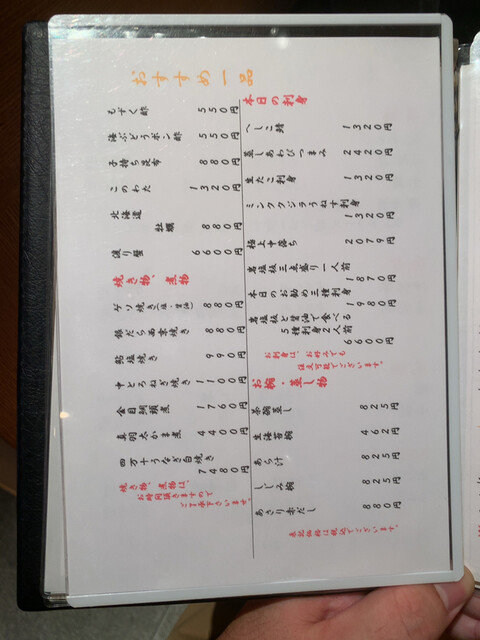 おすすめ一品
もずく酢 550円
海ぶどうポン酢 550円
子持ち昆布 880円
このわた 1320円
北海道
牡蠣 880円
渡り蟹 6600円
焼き物、煮物
ゲソ焼き(塩・醤油) 880円
銀だら西京焼き 880円
鮎塩焼き 990円
中とろねぎ焼き 1100円
金目鯛頭煮 1760円
真羽太かま煮 4400円
四万十うなぎ白焼き
7480円
焼き物、煮物は、
お時間頂きますので
ご了承下さいませ。
本日の刺身
へしこ鯖 1320円
蒸しあわびつまみ 2420円
生たこ刺身 1320円
ミンククジラうねす刺身
1320円
極上中落ち 2079円
岩塩板三点盛り一人前
1870円
本日のお勧め三種刺身
1980円
岩塩板と醤油で食べる
5種刺身2人前
6600円
お刺身は、お好みでも
注文可能でございます。
お椀・蒸し物
茶碗蒸し 825円
生海苔椀 462円
あら汁 825円
しじみ椀 825円
あさり赤だし 880円
表記価格は税込でございます。